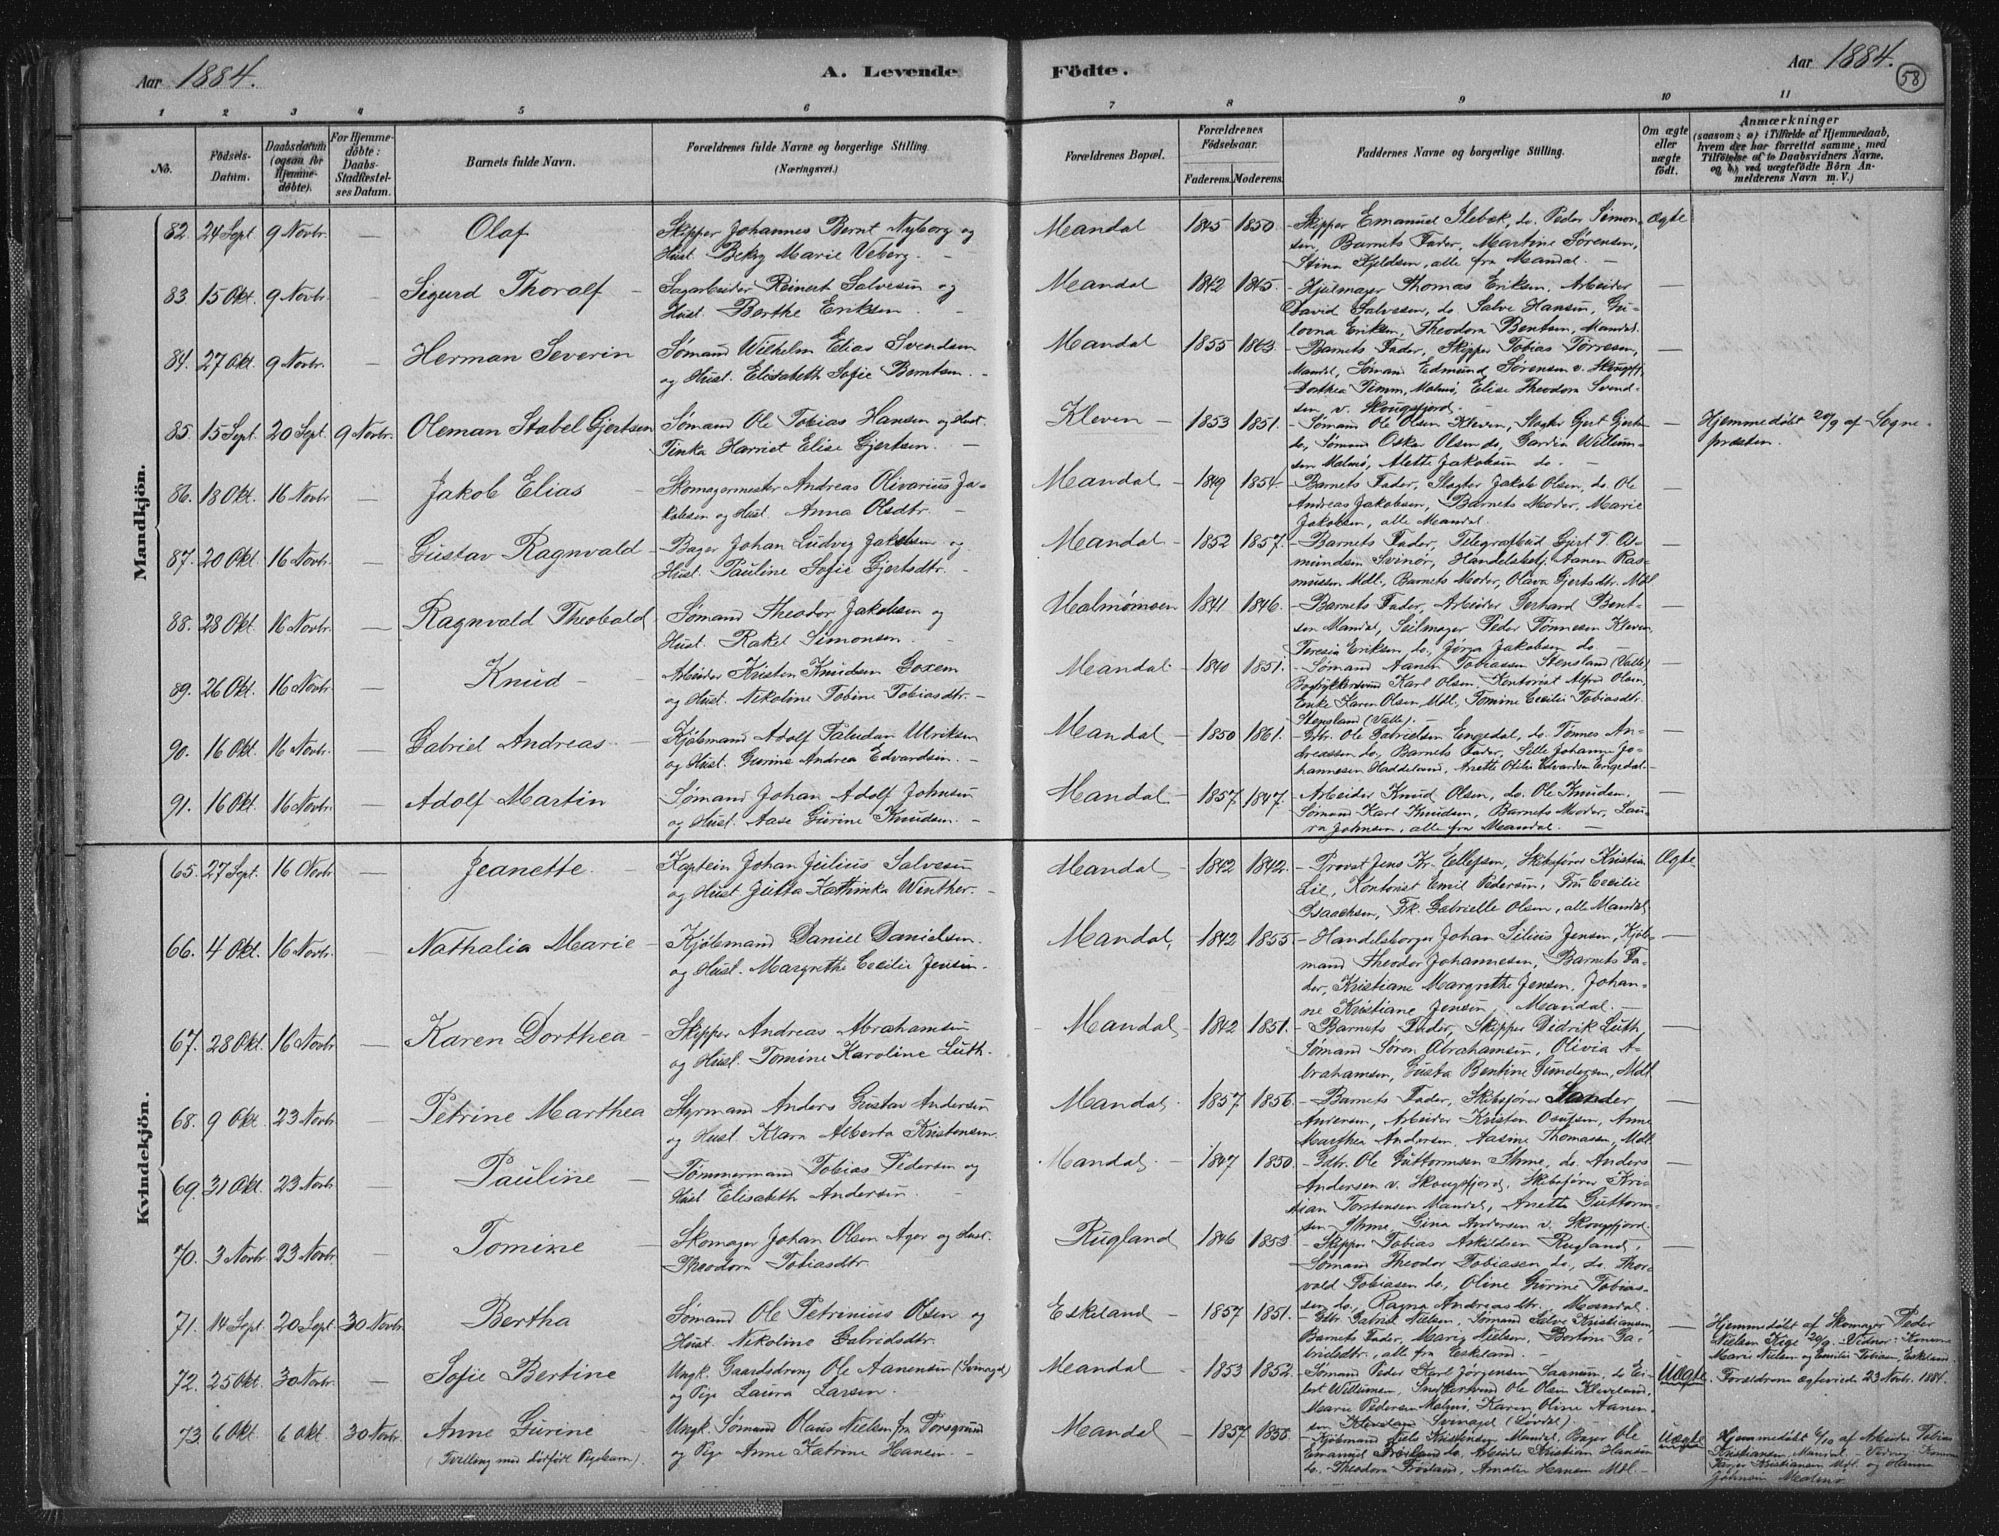 Aar 1884.
A. Levende Födte.
Aar 1884.
58
1 2 3 4 5 6 7 8 9 10 11
No.
Födsels-Datum.
Daabsdatum (ogsaa for Hjemme-döbte).
For Hjemme-döbte: Daabs-Stadfæstelses Datum.
Barnets fulde Navn.
Forældrenes fulde Navne og borgerlige Stilling. (Næringsvei.)
Forældrenes Bopæl.
Forældrenes Födselsaar.
Faderens. Moderens.
Faddernes Navne og borgerlige Stilling.
Om ægte eller uægte födt.
Anmærkninger
(saasom: a) i Tilfælde af Hjemmedaab, hvem der har forrettet samme, med Tilföielse af to Daabsvidners Navne, og b) ved uægtefödte Börn Anmelderens Navn m. V.)
Mandkjön.
82. 24 Sept. 9 Novbr. — Olaf
Skipper Johannes Bernt Nyborg og
Hust. Marie Veberg. —
Mandal 1845 1850.
Skipper Emanuel Ilebek, do. Peder Simon-
sen, Barnets Fader, Martine Sørensen,
Stina Kjeldsen, alle fra Mandal. —
Ægte
83. 15 Okt. 9 Novbr. — Sigurd Thoralf —
Sagarbeider Reinert Salvesen og
Hust. Berthe Eriksen. —
Mandal 1842 1845.
Hjulmager Thomas Eriksen, Arbeider
David Salvesen, do. Salve Hansen, Gu-
lovna Eriksen, Theodora Bentsen, Mandal.
84. 27 Okt. 9 Novbr. — Herman Severin
Sømand Wilhelm Elias Svendsen
og Hust. Elisabeth Sofie Berntsen. —
Mandal 1855 1863.
Barnets Fader, Skipper Tobias Tørresen,
Mandal, Sømand Edmund Sørensen v. Skougsfj.
Dorthea Timm, Malmö, Elise Theodora Svend-
sen v. Skougsfjord. —
85. 15 Sept. 20 Sept. 9 Novbr. Oleman Stabel Gjertsen
Sømand Ole Tobias Hansen og Hust.
Tinka Harriet Elise Gjertsen. —
Kleven 1853 1851.
Sømand Ole Olsen Kleven, Slagter Gjert Gjertsen
do, Sømand Oskar Olsen do, Willum-
sen Malmö, Alette Jakobsen do. —
Hjemmedøbt 20/9 af Sogne-
præsten.
86. 18 Okt. 16 Novbr. — Jakob Elias
Skomagermester Andreas Olivarius Ja-
kobsen og Hust. Anna Olsdtr. —
Mandal 1849 1854.
Barnets Fader, Slagter Jakob Olsen, do. Ole
Andreas Jakobsen, Barnets Moder, Marie
Jakobsen, alle Mandal.
87. 20 Okt. 16 Novbr. — Gustav Ragnvald
Bager Johan Ludvig Jakobsen og
Hust. Pauline Sofie Gjertsdtr. —
Mandal 1852 1857.
Barnets Fader, Telegrafbud Gjert T. Os-
mundsen Svinør, Handelsbetj. Aanen Ras-
mussen Mdl, Barnets Moder, Olava Gjertsdtr. Mdl
88. 28 Okt. 16 Novbr. — Ragnvald Theobald
Sømand Theodor Jakobsen og
Hust. Rakel Simonsen. —
Malmömoen 1841 1846.
Barnets Fader, Arbeider Gerhard Bent-
sen Mandal, Seilmager Peder Tønnesen Kleven,
Teresia Eriksen do, Jørga Jakobsen do —
89. 26 Okt. 16 Novbr. — Knud —
Arbeider Kristen Knudsen Goxem
og Hust. Nikoline Tobine Tobiasdtr. —
Mandal 1840 1851.
Sømand Aanen Tobiassen Stensland (Valle)
Bogtrykkersvend Karl Olsen, Kontorist Alfred Olsen,
Enke Karen Olsen Mdl, Tomine Cecilie Tobiasdtr.
Stensland (Valle).
90. 16 Okt. 16 Novbr. — Gabriel Andreas
Kjøbmand Adolf Paludan Ulriksen
og Hust. Gurine Andrea Edvardsen. —
Mandal 1850 1861.
Gdbr. Ole Gabrielsen Engedal, do. Tønnes An-
dreassen do, Barnets Fader, Sille Johanne Jo-
hannesen Haddeland, Anette Otilie Edvardsen Engedal —
91. 16 Okt. 16 Novbr. — Adolf Martin
Sømand Johan Adolf Johnsen
og Hust. Aase Gurine Knudsen. —
Mandal 1857. 1847.
Arbeider Knud Olsen, do. Ole Knudsen,
Sømand Karl Knudsen, Barnets Moder, Lau-
ra Johnsen, alle fra Mandal. —
Kvindekjön.
65. 27 Sept. 16 Novbr — Jeanette
Kaptein Johan Julius Salvesen
og Hust. Jutta Kathinka Winther. —
Mandal 1842 1842.
Provst Jens Kr. Ellefsen, Skibsfører Kristian
Lie, Kontorist Emil Pedersen, Fru Cecilie
Isaachsen, Frk. Gabrielle Olsen, alle Mandal
Ægte
66. 4 Okt. 16 Novbr. — Nathalia Marie —
Kjøbmand Daniel Danielsen
og Hust. Margrethe Cecilie Jensen. —
Mandal 1842 1855
Handelsborger Johan Silius Jensen, Kjøb-
mand Theodor Johannesen, Barnets Fa-
der, Kristiane Margrethe Jensen, Johan-
ne Kristiane Jensen, Mandal. —
67. 28 Okt. 16 Novbr. — Karen Dorthea —
Skipper Andreas Abrahamsen
og Hust. Tomine Karoline Luth. —
Mandal 1842 1851.
Barnets Fader, Skipper Didrik Luth,
Sømand Søren Abrahamsen, Olivia A-
brahamsen, Gusta Bentine Gundersen, Mdl
68. 9 Okt. 23 Novbr. — Petrine Marthea
Styrmand Anders Gustav Andersen
og Hust. Klara Alberta Kristensen.
Mandal 1857 1856.
Barnets Fader, Skibsfører
Andersen, Arbeider Kristen Osufsen, Anne
Marthea Andersen, Aasine Thomassen, Mdl
69. 31 Okt. 23 Novbr. — Pauline —
Tømmermand Tobias Pedersen og
Hust Elisabeth Andersen. —
Mandal 1847 1850.
Gdbr. Ole Guttormsen Ihme, do. Anders
Andersen v. Skougsfjord, Skibsfører Kri-
stian Torstensen Mandal, Anette Guttorm-
sen Ihme, Gina Andersen v. Skougsfjord.
70. 3 Novbr 23 Novbr. — Tomine —
Skomager Johan Olsen Ager og Hust.
Theodora Tobiasdtr.
Rugland 1846 1853
Skipper Tobias Askildsen Rugland,
Sømand Theodor Tobiasen do, do. Thor-
vald Tobiasen do, Oline Gurine Tobias-
sen do, Ragna Andreasdtr. Mandal —
71. 14 Sept. 20 Sept 30 Novbr. Bertha
Sømand Ole Petrinius Olsen og
Hust. Nikoline Gabrielsdtr.
Eskeland 1857 1851.
Gdbr. Gabriel Nielsen, Sømand Salve Kristiansen,
Barnets Fader, Marie Nielsen, Bertine Ga-
brielsdtr., alle fra Eskeland. —
Hjemmedøbt af Skomager Peder
Nielsen Kige 20/9. Vidner: Konerne
Marie Nielsen og Emilie Tobiasen, Eskeland
72. 25 Okt. 30 Novbr. — Sofie Bertine
Ungk. Gaardsdreng Ole Aanensen (Svinagd)
og Pige Laura Larsen.
Mandal 1853 1852.
Sømand Peder Karl Jørgensen Saanum, do. Ei-
bert Willumsen, Snedkersvend Ole Olsen Kleveland,
Marie Pedersen Malmö, Karen Oline Aanen-
sen Svinagd (Løvdal).
Uægte
Forældrene ægteviede 23 Novbr. 1884.
73. 6 Okt. 6 Okt. 30 Novbr. Anne Gurine
(Tvilling med dødfødt Pigebarn).
Ungk. Sømand Olaus Nielsen fra Porsgrund
og Pige Anne Katrine Hansen. —
Mandal 1857 1856.
Kjøbmand Kristensen Mandal, Bager Ole
Emanuel Frøiland do, Arbeider Kristian Hansen
do. Theodora Frøiland, Amalie Hansen Mdl —
Uægte
Hjemmedøbt 6/10 af Arbeider Tobias
Kristiansen, Mandal. — Vidner: Konerne
Kristiansen Mdl. og Hanna
Johnsen Malmö.